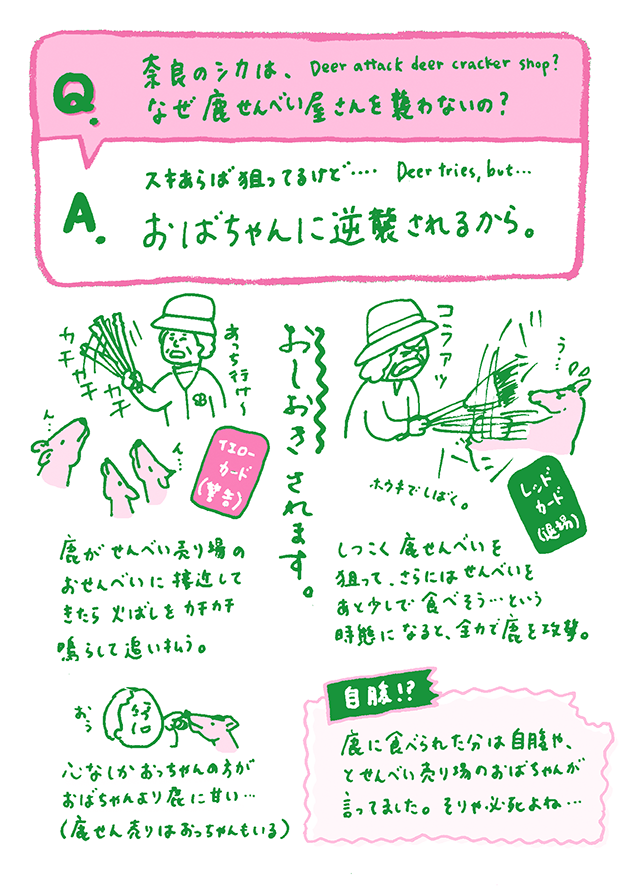 Q.
奈良のシカは、 Deer attack deer cracker shop?
なぜ鹿せんべい屋さんを襲わないの?
A.
スキあらば狙ってるけど‥‥ Deer tries, but…
おばちゃんに逆襲されるから。
おしおきされます。
カチ
カチ
カチ
カチ
あっち行け〜
ん…
ん…
イエロー
カード
(警告)
鹿がせんべい売り場の
おせんべいに接近して
きたら火ばしをカチカチ
鳴らして追い払う。
コラァッ
う…
バーン
ホウキでしばく。
レッド
カード
(退場)
しつこく鹿せんべいを
狙って、さらにはせんべいを
あと少しで食べそう…という
時態になると、全力で鹿を攻撃。
おぅ
心なしかおっちゃんの方が
おばちゃんより鹿に甘い…
(鹿せん売りはおっちゃんもいる)
自腹!?
鹿に食べられた分は自腹や、
とせんべい売り場のおばちゃんが
言ってました。そりゃ必死よね…